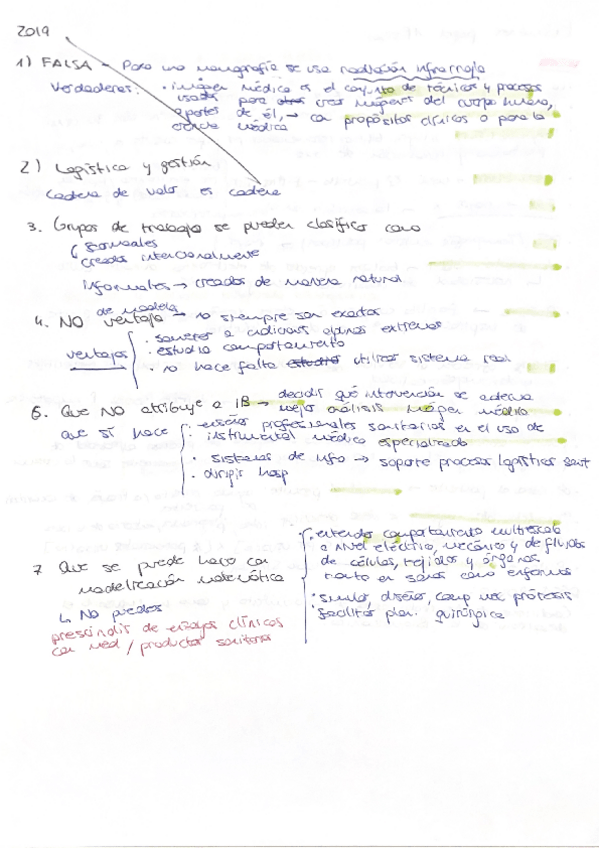 2019
1) FALSA - Para una mamografía se usa radiación infrarroja
Verdaderas: · imagen médica es el conjunto de técnicas y procesos
usados para crear imágenes del cuerpo humano,
o partes de él, → con propósitos clínicos o para la
ciencia médica
2) Logística y gestión
Cadena de valor es cadena
3. Grupos de trabajo se pueden clasificar como
formales
creados intencionalmente
informales → creados de manera natural
4. NO ventaja de modelo → no siempre son exactos
ventajas
· someter a condiciones extremas
· estudia comportamiento
· no hace falta utilizar sistema real
6. Que NO atribuye a IB → decidir qué intervención se
mejor análisis imagen médica
que sí hace
· enseñar profesionales sanitarios en el uso de
instrumental médico especializado
· sistemas de info → soporte procesos logísticos sanit
· dirigir hosp
7 Que se puede hacer con
modelización matemática
↳ No puedes
prescindir de ensayos clínicos
con med / productos sanitarios
· entender comportamiento multiescala
a nivel eléctrico, mecánico y de fluidos
de células, tejidos y órganos
tanto en sanos como enfermos
· simular, diseñar, comp prótesis
· facilitar plan. quirúrgica